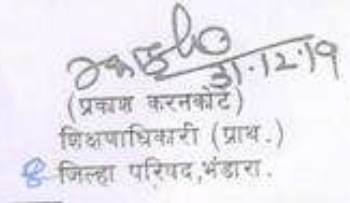 31.12.19
(प्रकाश करनकोटे)
शिक्षणाधिकारी (प्राथ.)
जिल्हा परिषद,भंडारा.